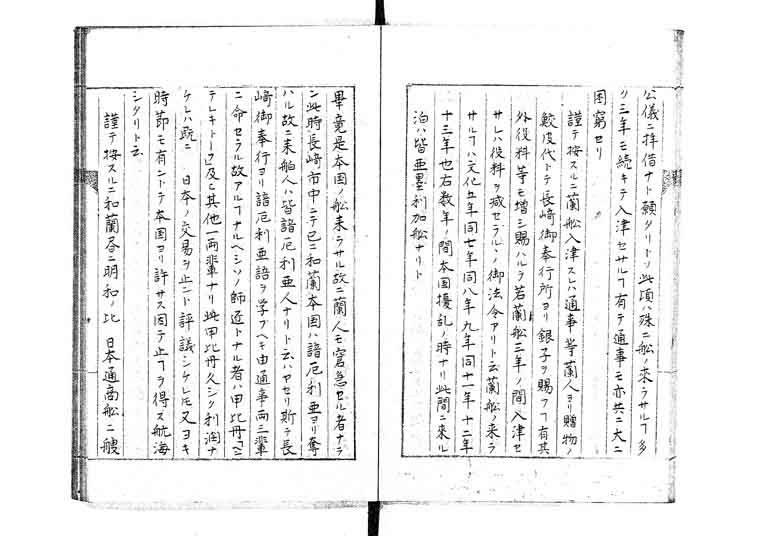 公儀ニ拝借ナト願タリトソ此頃ハ殊ニ船ノ来ラサルヿ多
ク三年モ続キテ入津セサルヿ有テ通事モ亦共ニ大ニ
困窮セリ
謹テ按スルニ蘭船入津スレハ通事等蘭人ヨリ贈物ノ
鮫皮代トテ長﨑御奉行所ヨリ銀子ヲ賜フヿ有其
外役料等モ増シ賜ハルヲ若蘭船三年ノ間入津セ
サレハ役料ヲ減セラルヽノ御法令アリト云蘭船ノ来ラ
サルヿハ文化五年同七年同八年九年同十一年十二年
十三年也右数年ノ間本国擾乱ノ時ナリ此間ニ来ル
泊ハ皆亜墨利加船ナリト
畢竟是本国ノ船来ラサル故ニ蘭人モ窘急セル者ナラ
ン此時長﨑市中ニテ已ニ和蘭本国ハ諳厄利亜ヨリ奪
ハル故ニ来舶人ハ皆諳厄利亜人ナリト云ハヤセリ斯テ長
﨑御奉行ヨリ諳厄利亜語ヲ学フヘキ由通事両三輩
ニ命セラル故アルヿナルヘシソノ師匠トナル者ハ甲比丹「ヘン
テレキトーフ」及ヒ其他一両輩ナリ此甲比丹久シク利潤ナ
ケレハ既ニ 日本ノ交易ヲ止ント評議シケレ𪜈又ヨキ
時節モ有ントテ本国ヨリ許サス因テ止ヿヲ得ス航海
シタリト云
謹テ按スルニ和蘭昏ニ明和ノ比 日本通商船ニ艘